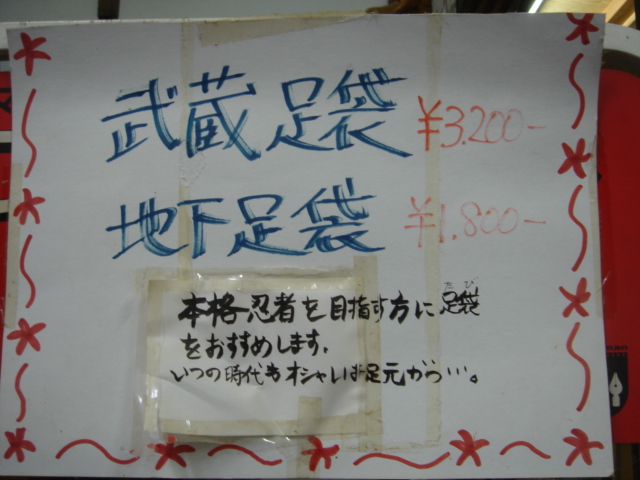 武蔵足袋 ¥3.200-
地下足袋 ¥1.800-
本格忍者を目指す方に足袋
たび
をおすすめします.
いつの時代もオシャレは足元から…。